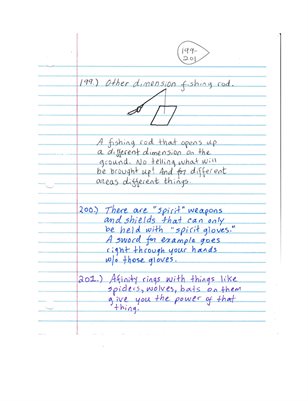 199-
201
199.) Other dimension fishing rod.
A fishing rod that opens up
a different dimension on the
ground. No telling what will
be brought up! And for different
areas different things.
200.) There are "spirit" weapons
and shields that can only
be held with "spirit gloves."
A sword for example goes
right through your hands
w/o those gloves.
201.) Afinity rings with things like
spiders, wolves, bats on them
give you the power of that
thing.